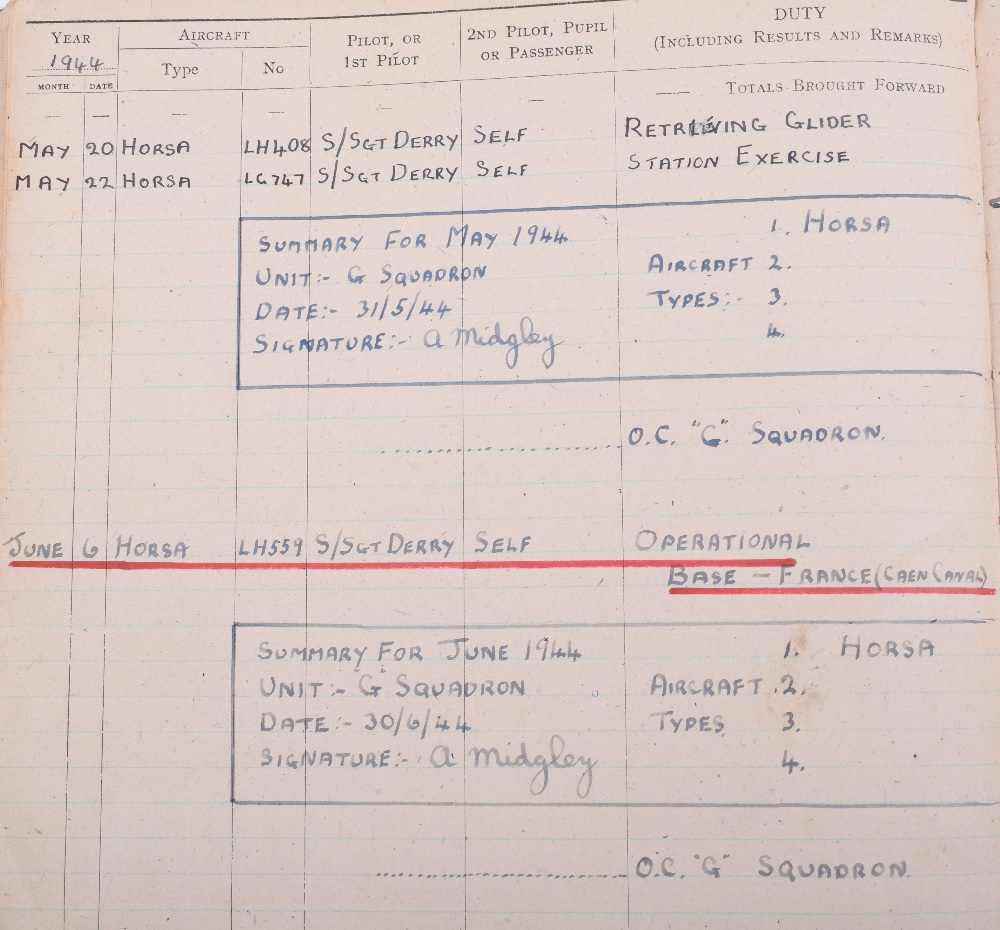 YEAR AIRCRAFT PILOT, OR 1ST PILOT 2ND PILOT, PUPIL OR PASSENGER DUTY (INCLUDING RESULTS AND REMARKS)
1944 Type No
MONTH DATE
— — — — — — —— TOTALS BROUGHT FORWARD
MAY 20 HORSA LH408 S/SGT DERRY SELF RETRIEVING GLIDER
MAY 22 HORSA LG747 S/SGT DERRY SELF STATION EXERCISE
SUMMARY FOR MAY 1944 1. HORSA
UNIT:- G SQUADRON AIRCRAFT 2.
DATE:- 31/5/44 TYPES:- 3.
SIGNATURE:- A Midgley 4.
O.C. "G". SQUADRON.
JUNE 6 HORSA LH559 S/SGT DERRY SELF OPERATIONAL
BASE — FRANCE (CAEN CANAL)
SUMMARY FOR JUNE 1944 1. HORSA
UNIT:- G SQUADRON AIRCRAFT 2.
DATE:- 30/6/44 TYPES 3.
SIGNATURE:- A Midgley 4.
O.C. "G" SQUADRON.